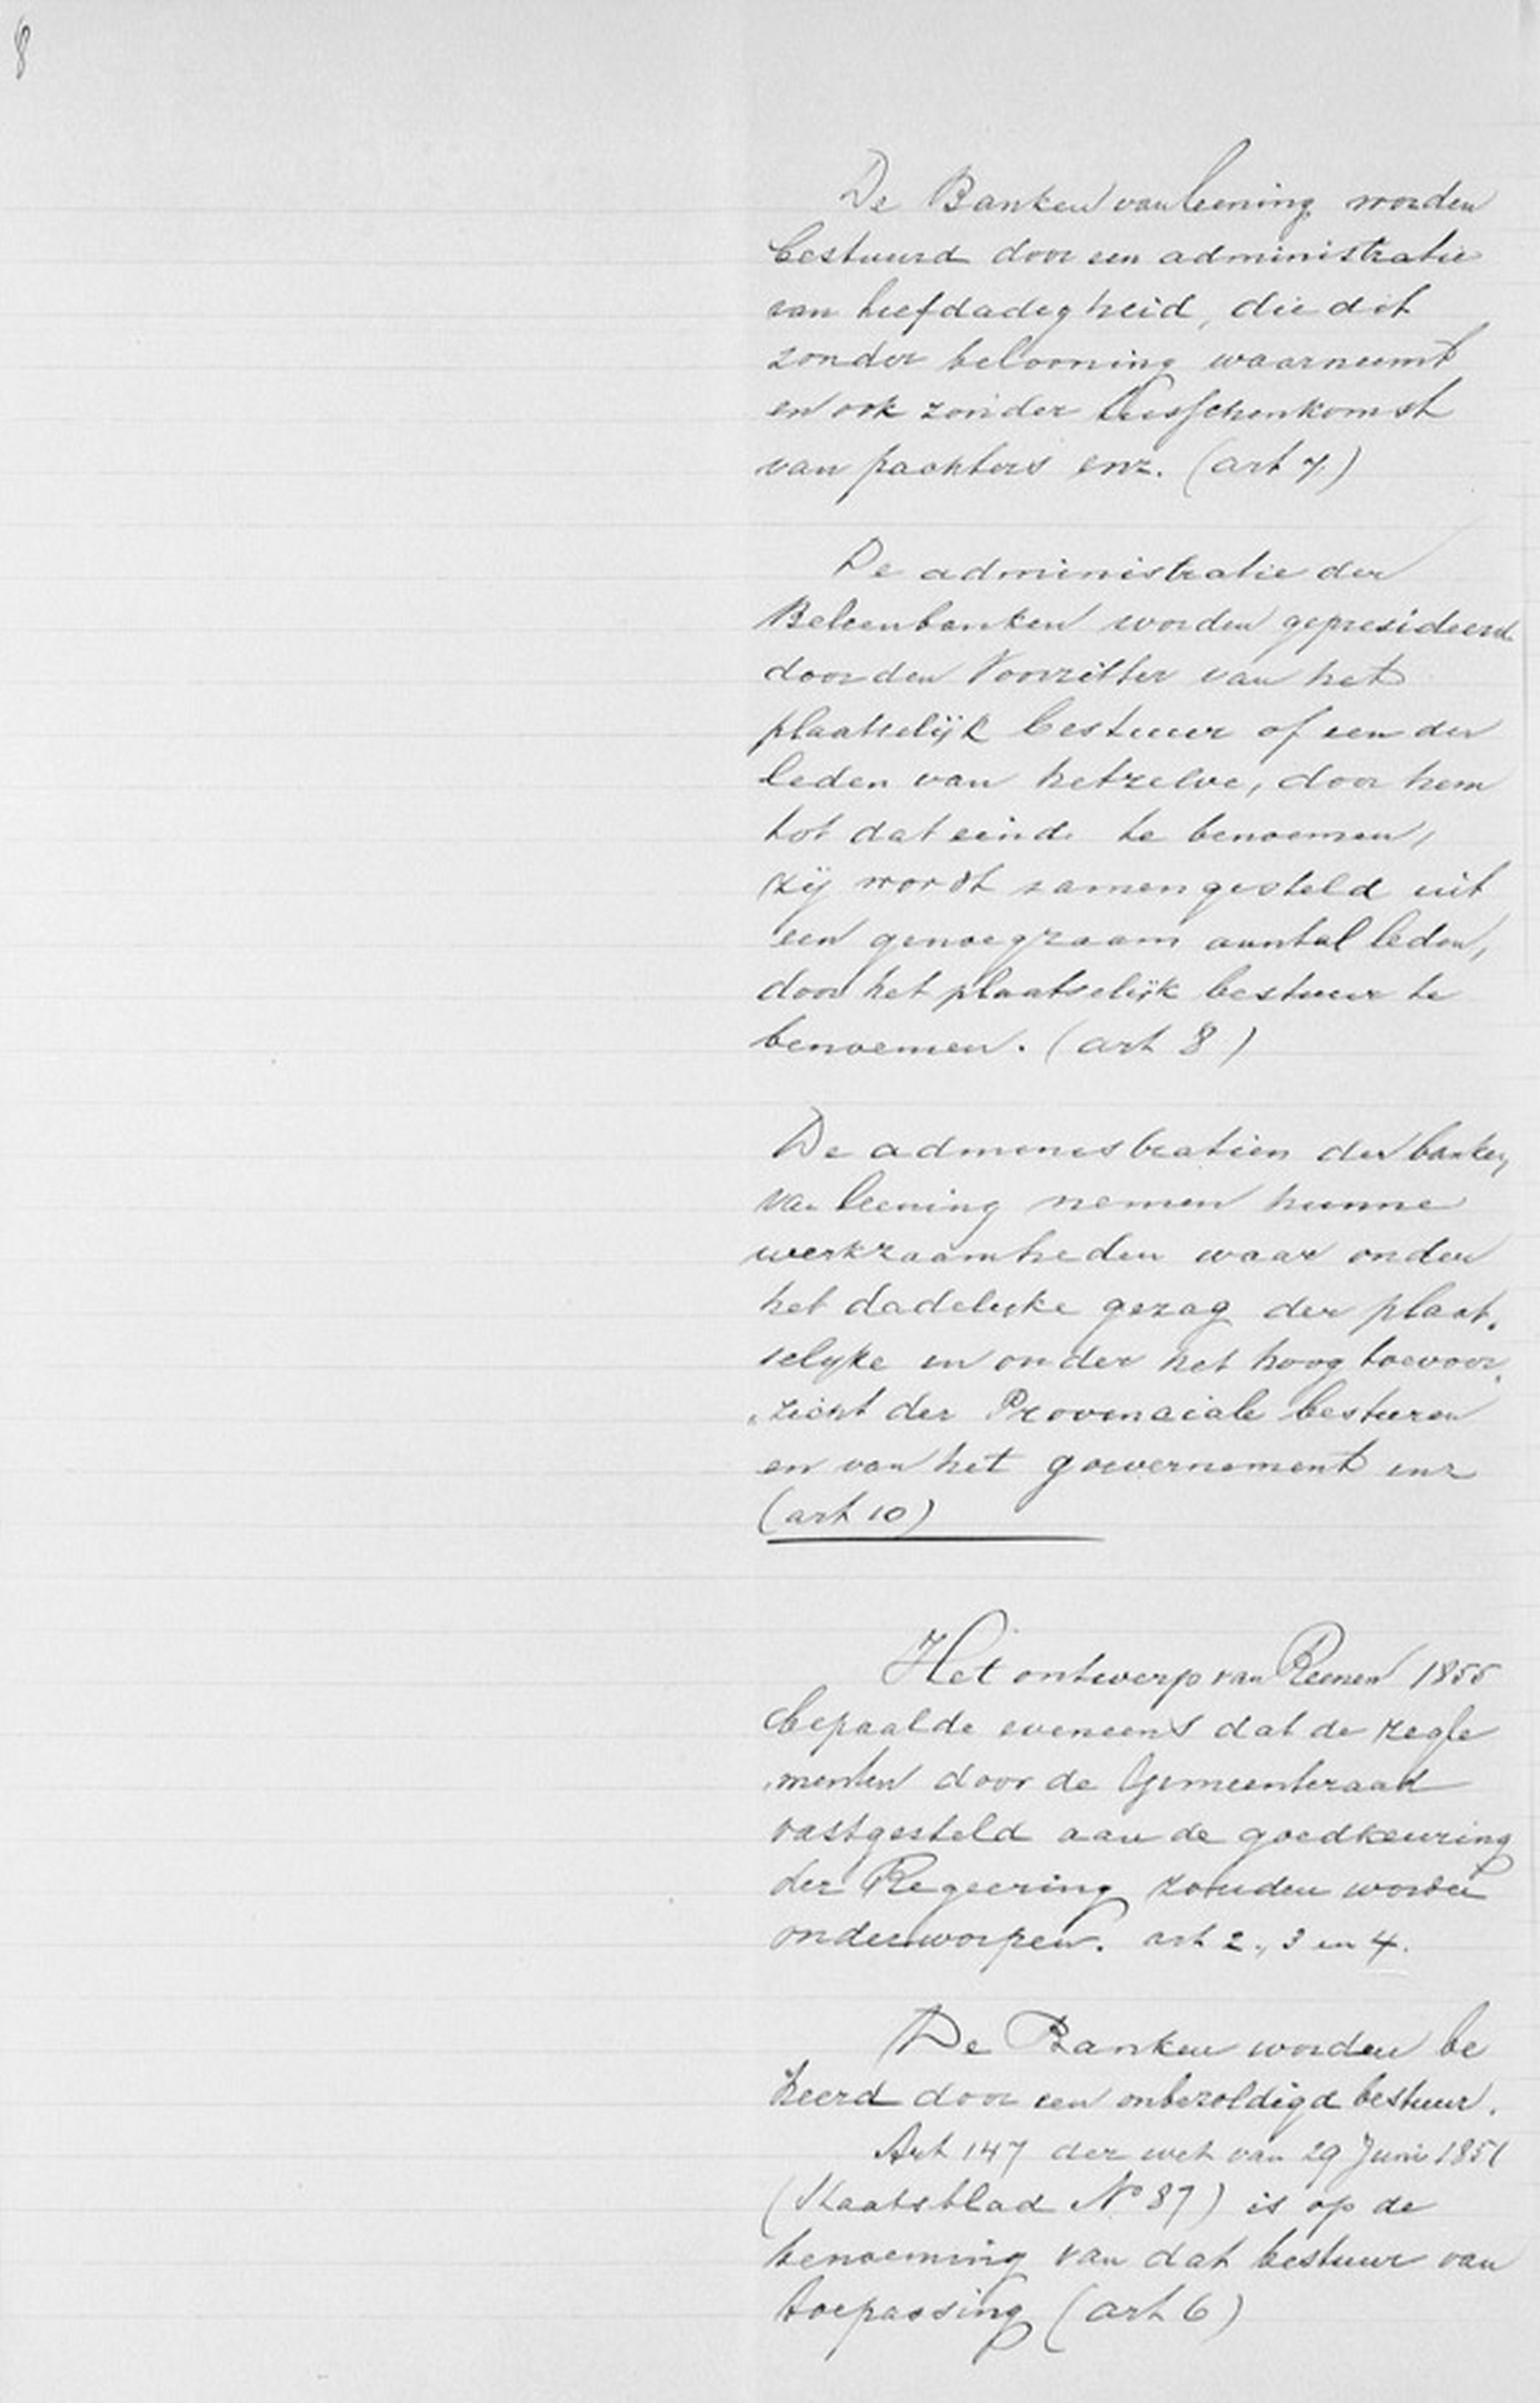 8
De Banken van leening worden
bestuurd door een administratie
van liefdadigheid, die dit
zonder belooning waarneemt
en ook zonder tusschenkomst
van pachters enz. (art 7)
De administratie der
Beleenbanken worden gepresideerd
door den Voorzitter van het
plaatselijk bestuur of een der
leden van hetzelve, door hem
tot dat einde te benoemen,
zij wordt samengesteld uit
een genoegzaam aantal leden,
door het plaatselijk bestuur te
benoemen. (art 8)
De administratien der banken
van leening nemen hunne
werkzaamheden waar onder
het dadelijke gezag der plaat,
selijke en onder het hoog toevoor,
„zicht der Provinciale besturen
en van het gouvernement enz
(art 10)
Het ontwerp van Reenen 1855
bepaalde eveneens dat de regle
„menten door de Gemeenteraad
vastgesteld aan de goedkeuring
der Regeering zouden worden
onderworpen. art 2, 3 en 4.
De Banken worden be
heerd door een onbezoldigd bestuur.
Art 147 der wet van 29 Juni 1851
(Staatsblad No 87) is op de
benoeming van dat bestuur van
toepassing (art 6)